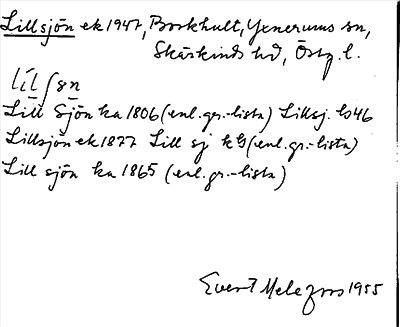 Lillsjön ek 1947, Borkhult, Yxnerums sn,
Skärkinds hd, Östg. l.
líl ʃön
Lill Sjön ka 1806 (enl. gr.-lista) Lillsj. ls 46
Lillsjön ek 1877 Lill sj kG (enl. gr.-lista)
Lill sjön ka 1865 (enl. gr.-lista)
Evert Melefors 1955